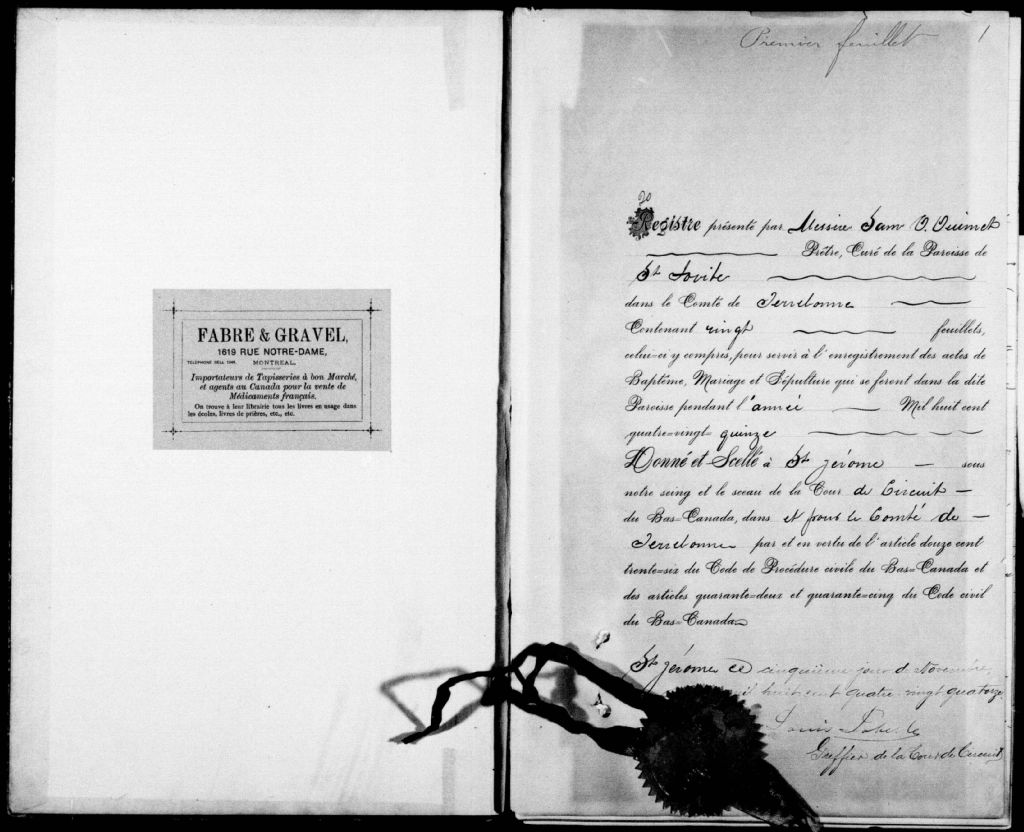 FABRE & GRAVEL,
1619 RUE NOTRE-DAME,
TELEPHONE BELL
MONTREAL.
Importateurs de Tapisseries à bon Marché,
et agents au Canada pour la vente de
Médicaments français.
On trouve à leur librairie tous les livres en usage dans
les écoles, livres de prières, etc., etc.
Premier feuillet 1
Registre présenté par Messire Sam O. Ouimet
Prêtre, Curé de la Paroisse de
St Jovite
dans le Comté de Terrebonne
Contenant vingt feuillets,
celui-ci y compris, pour servir à l'enregistrement des actes de
Baptême, Mariage et Sépulture qui se feront dans la dite
Paroisse pendant l'année Mil huit cent
quatre=vingt= quinze
Donné et Scellé à St Jérome sous
notre seing et le sceau de la Cour de Circuit
du Bas=Canada, dans et pour le Comté de
Terrebonne par et en vertu de l'article douze cent
trente=six du Code de Procédure civile du Bas=Canada et
des articles quarante=deux et quarante=cinq du Code civil
du Bas=Canada
St Jérome ce cinquième jour de Novembre
huit cent quatre-vingt quatorze
Louis
Greffier de la Cour de Circuit